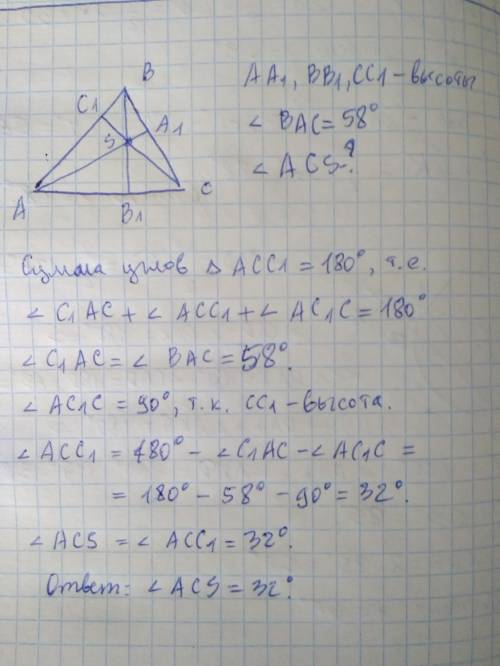 B
C1
A1
S
A
B1
C
AA1, BB1, CC1 - высоты
∠ BAC = 58°
∠ ACS - ?
Сумма углов △ ACC1 = 180°, т.е.
∠ C1AC + ∠ ACC1 + ∠ AC1C = 180°
∠ C1AC = ∠ BAC = 58°.
∠ AC1C = 90°, т.к. CC1 - высота.
∠ ACC1 = 180° - ∠C1AC - ∠AC1C =
= 180° - 58° - 90° = 32°.
∠ ACS = ∠ ACC1 = 32°.
Ответ: ∠ ACS = 32°.